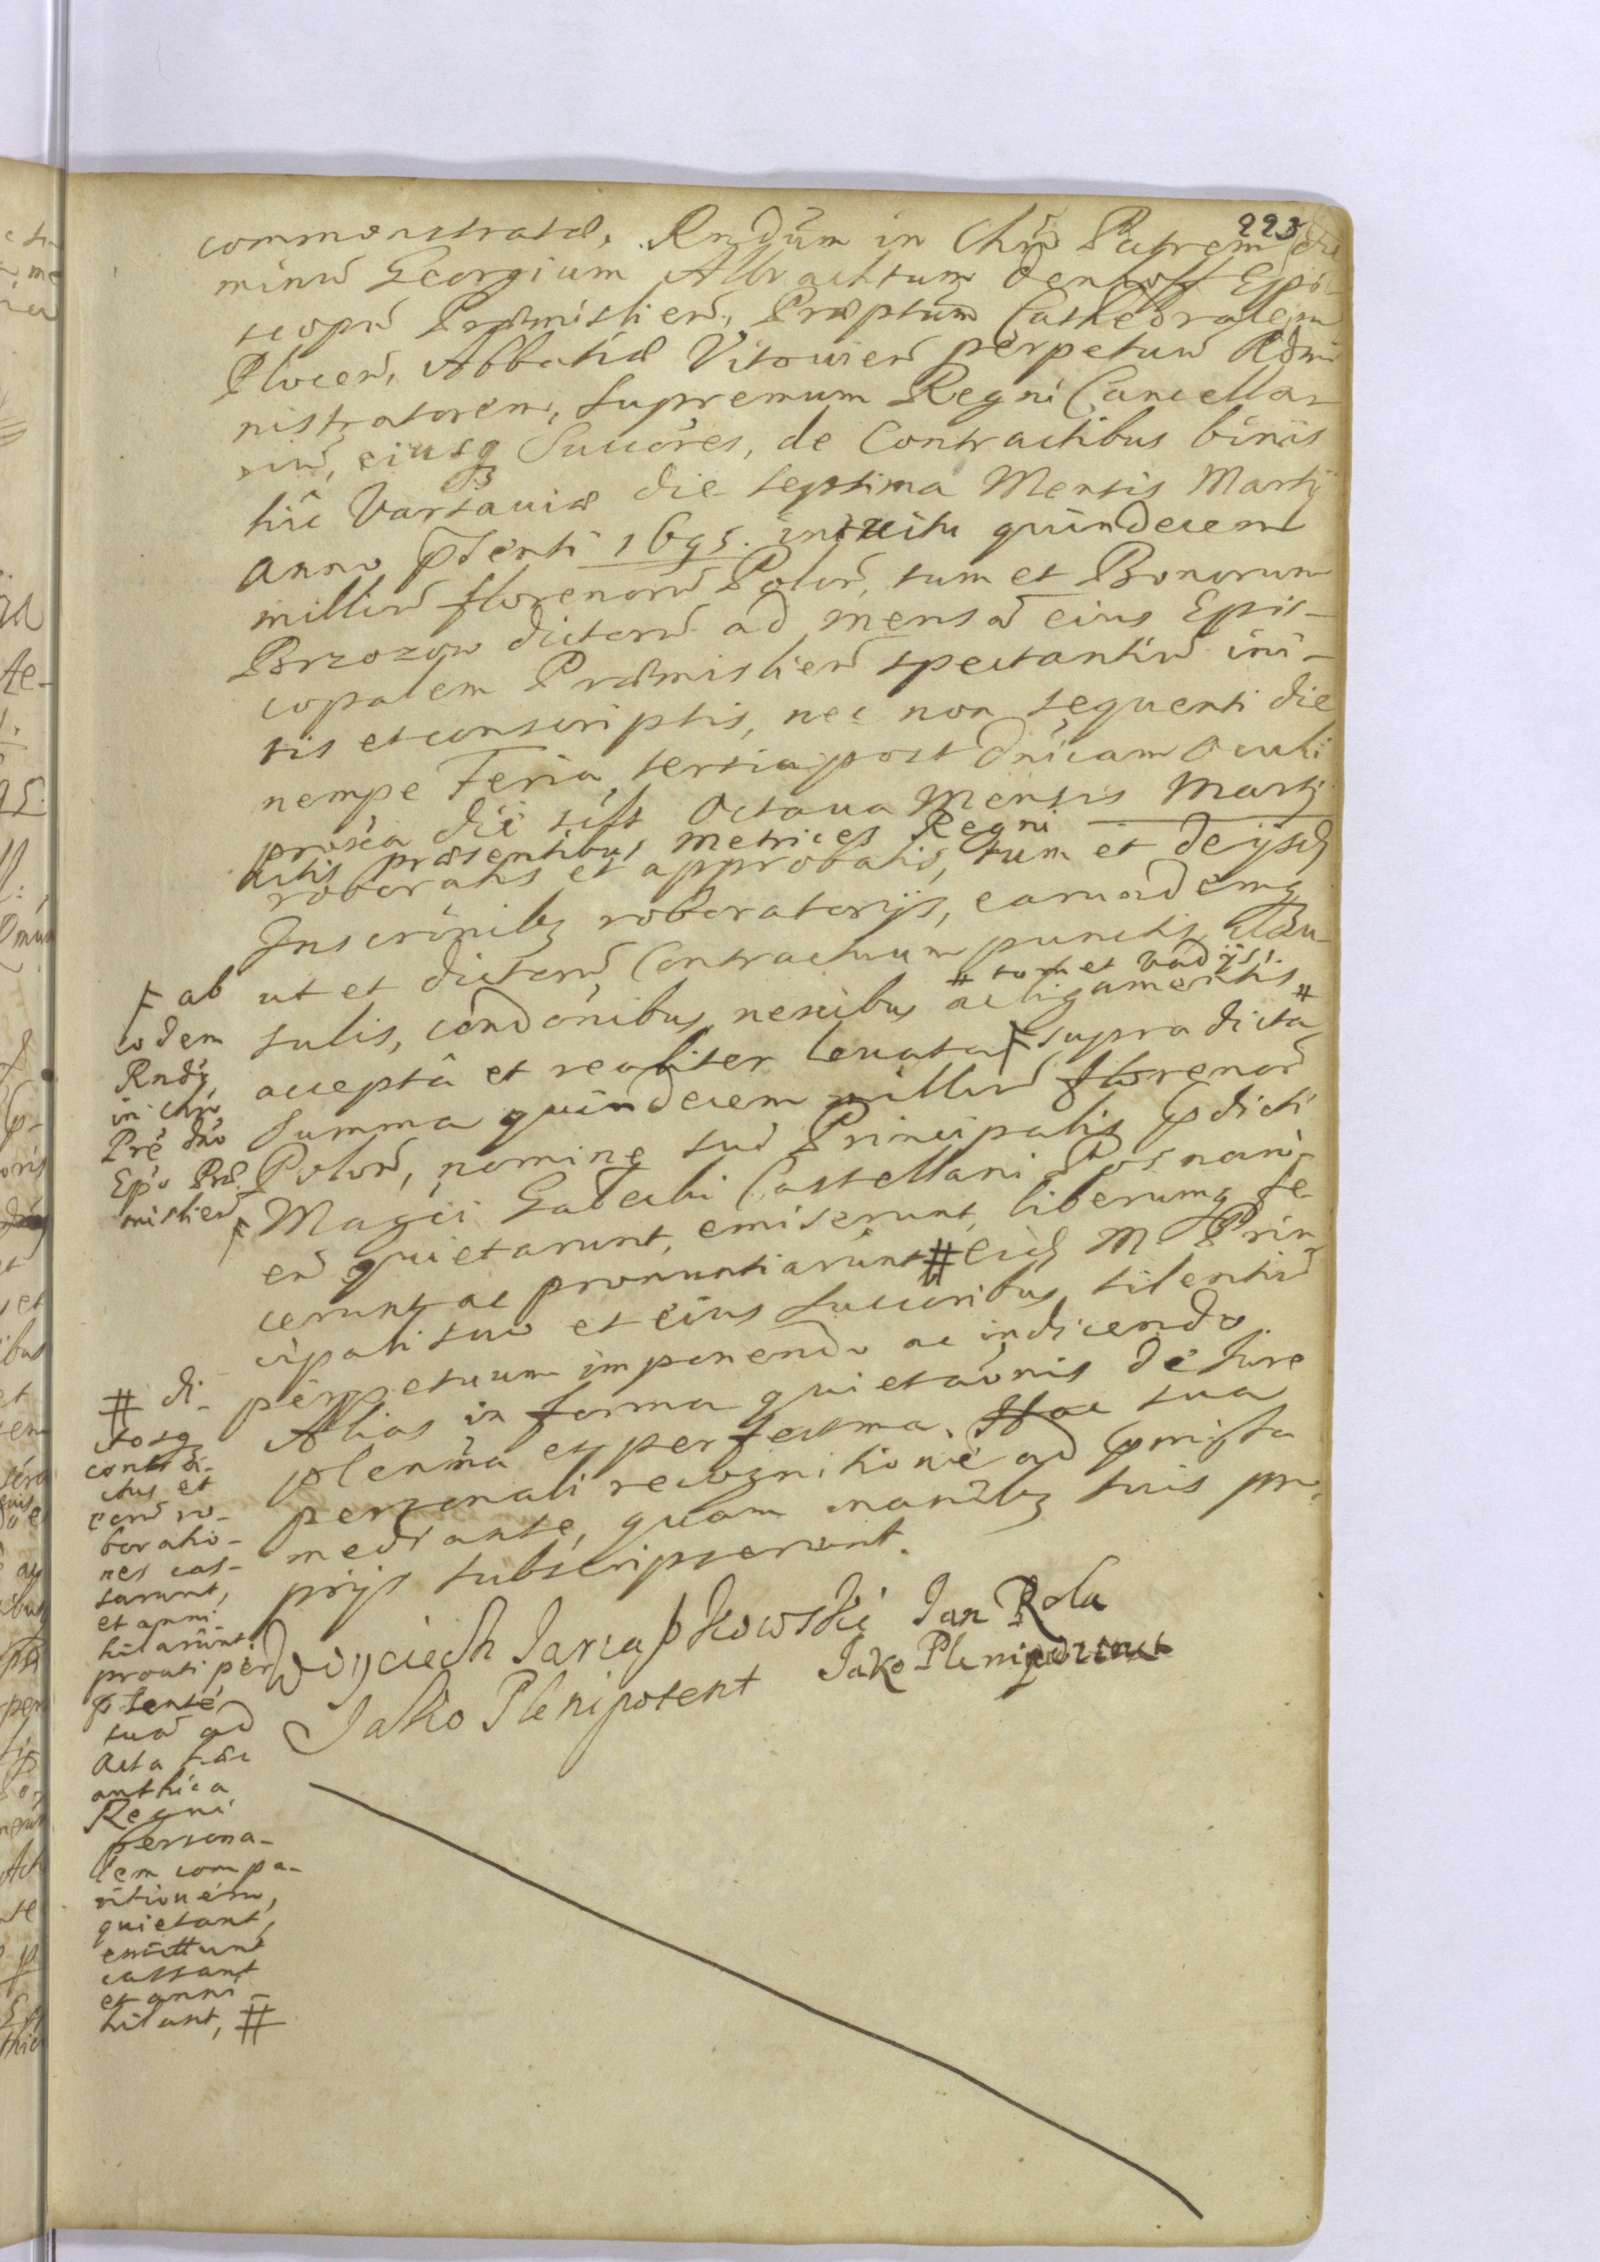 223
commonstratae, Rndūm in Chrō Patrem Do
minū Georgium Albrachtum Denhoff Epis-
copū Praemislien̄, Praeptum Cathedralem
Plocen̄, Abbatiae Vitovien̄ perpetuū Admi
nistratorem, Supremum Regni Cancella-
riū, eiusq₃ Succōres, de Contractibus binis
hîc Varsaviae die septima Mensis Martij
Anno p̄senti 1695. intuitu quindecem
milliū florenorū Polon̄, tum et Bonorum
Brzozow dictorū ad mensā eius Epis-
copalem Praemislien̄ spectantiū ini-
tis et conscriptis, nec non sequenti die
nempe Feria tertia post Dn̄icam Oculi
proxīa die sc̄t Octava Mensis Martij
Actis praesentibus Metrices Regni
roboratis et approbatis, tum et de ijsd̄
Inscr̄onib₃ roboratorijs, earundemq₃
ut et dictorū Contractuum punctis, clau-
# tum et Vadijs.
sulis, cōndōnibus, nexibus ac ligamentis #
acceptâ et realiter levata Ꞙ supra dicta
Summa quindecem milliū florenorū
Polon̄, nomine sui Principalis p̄dicti
Magn̄ci Gałecki Castellani Posnani-
en̄ quietarunt, emiserunt, liberumq₃ fe-
cerunt ac pronuntiarunt # eid̄ M. Prin-
cipali suo et eius Succōribus silentiū
perpetuum imponendo ac indicendo
Alias in forma quietaōnis de Jure
plenīma et perfectīma. Hac sua
personali recognitione ad p̄missa
mediante, quam manib₃ suis pro-
prijs subscripserunt.
Woyciech Jarząbkowski Jan Rola
Jako Plenipotent Jako Plenipotent
Ꞙ ab
eodem
Rnd̄o
in Chrō
Prē Dn̄o
Ep̄o Prae-
mislien̄
Ꞙ
# di-
ctosq₃
contra-
ctus et
eorū ro-
boratio-
nes cas-
sarunt,
et anni
hilarunt.
prouti per
p̄sentē
suā ad
Acta haec
authica
Regni
persona-
lem compa-
ritionem,
quietant,
emittunt
cassant
et anni-
hilant, #